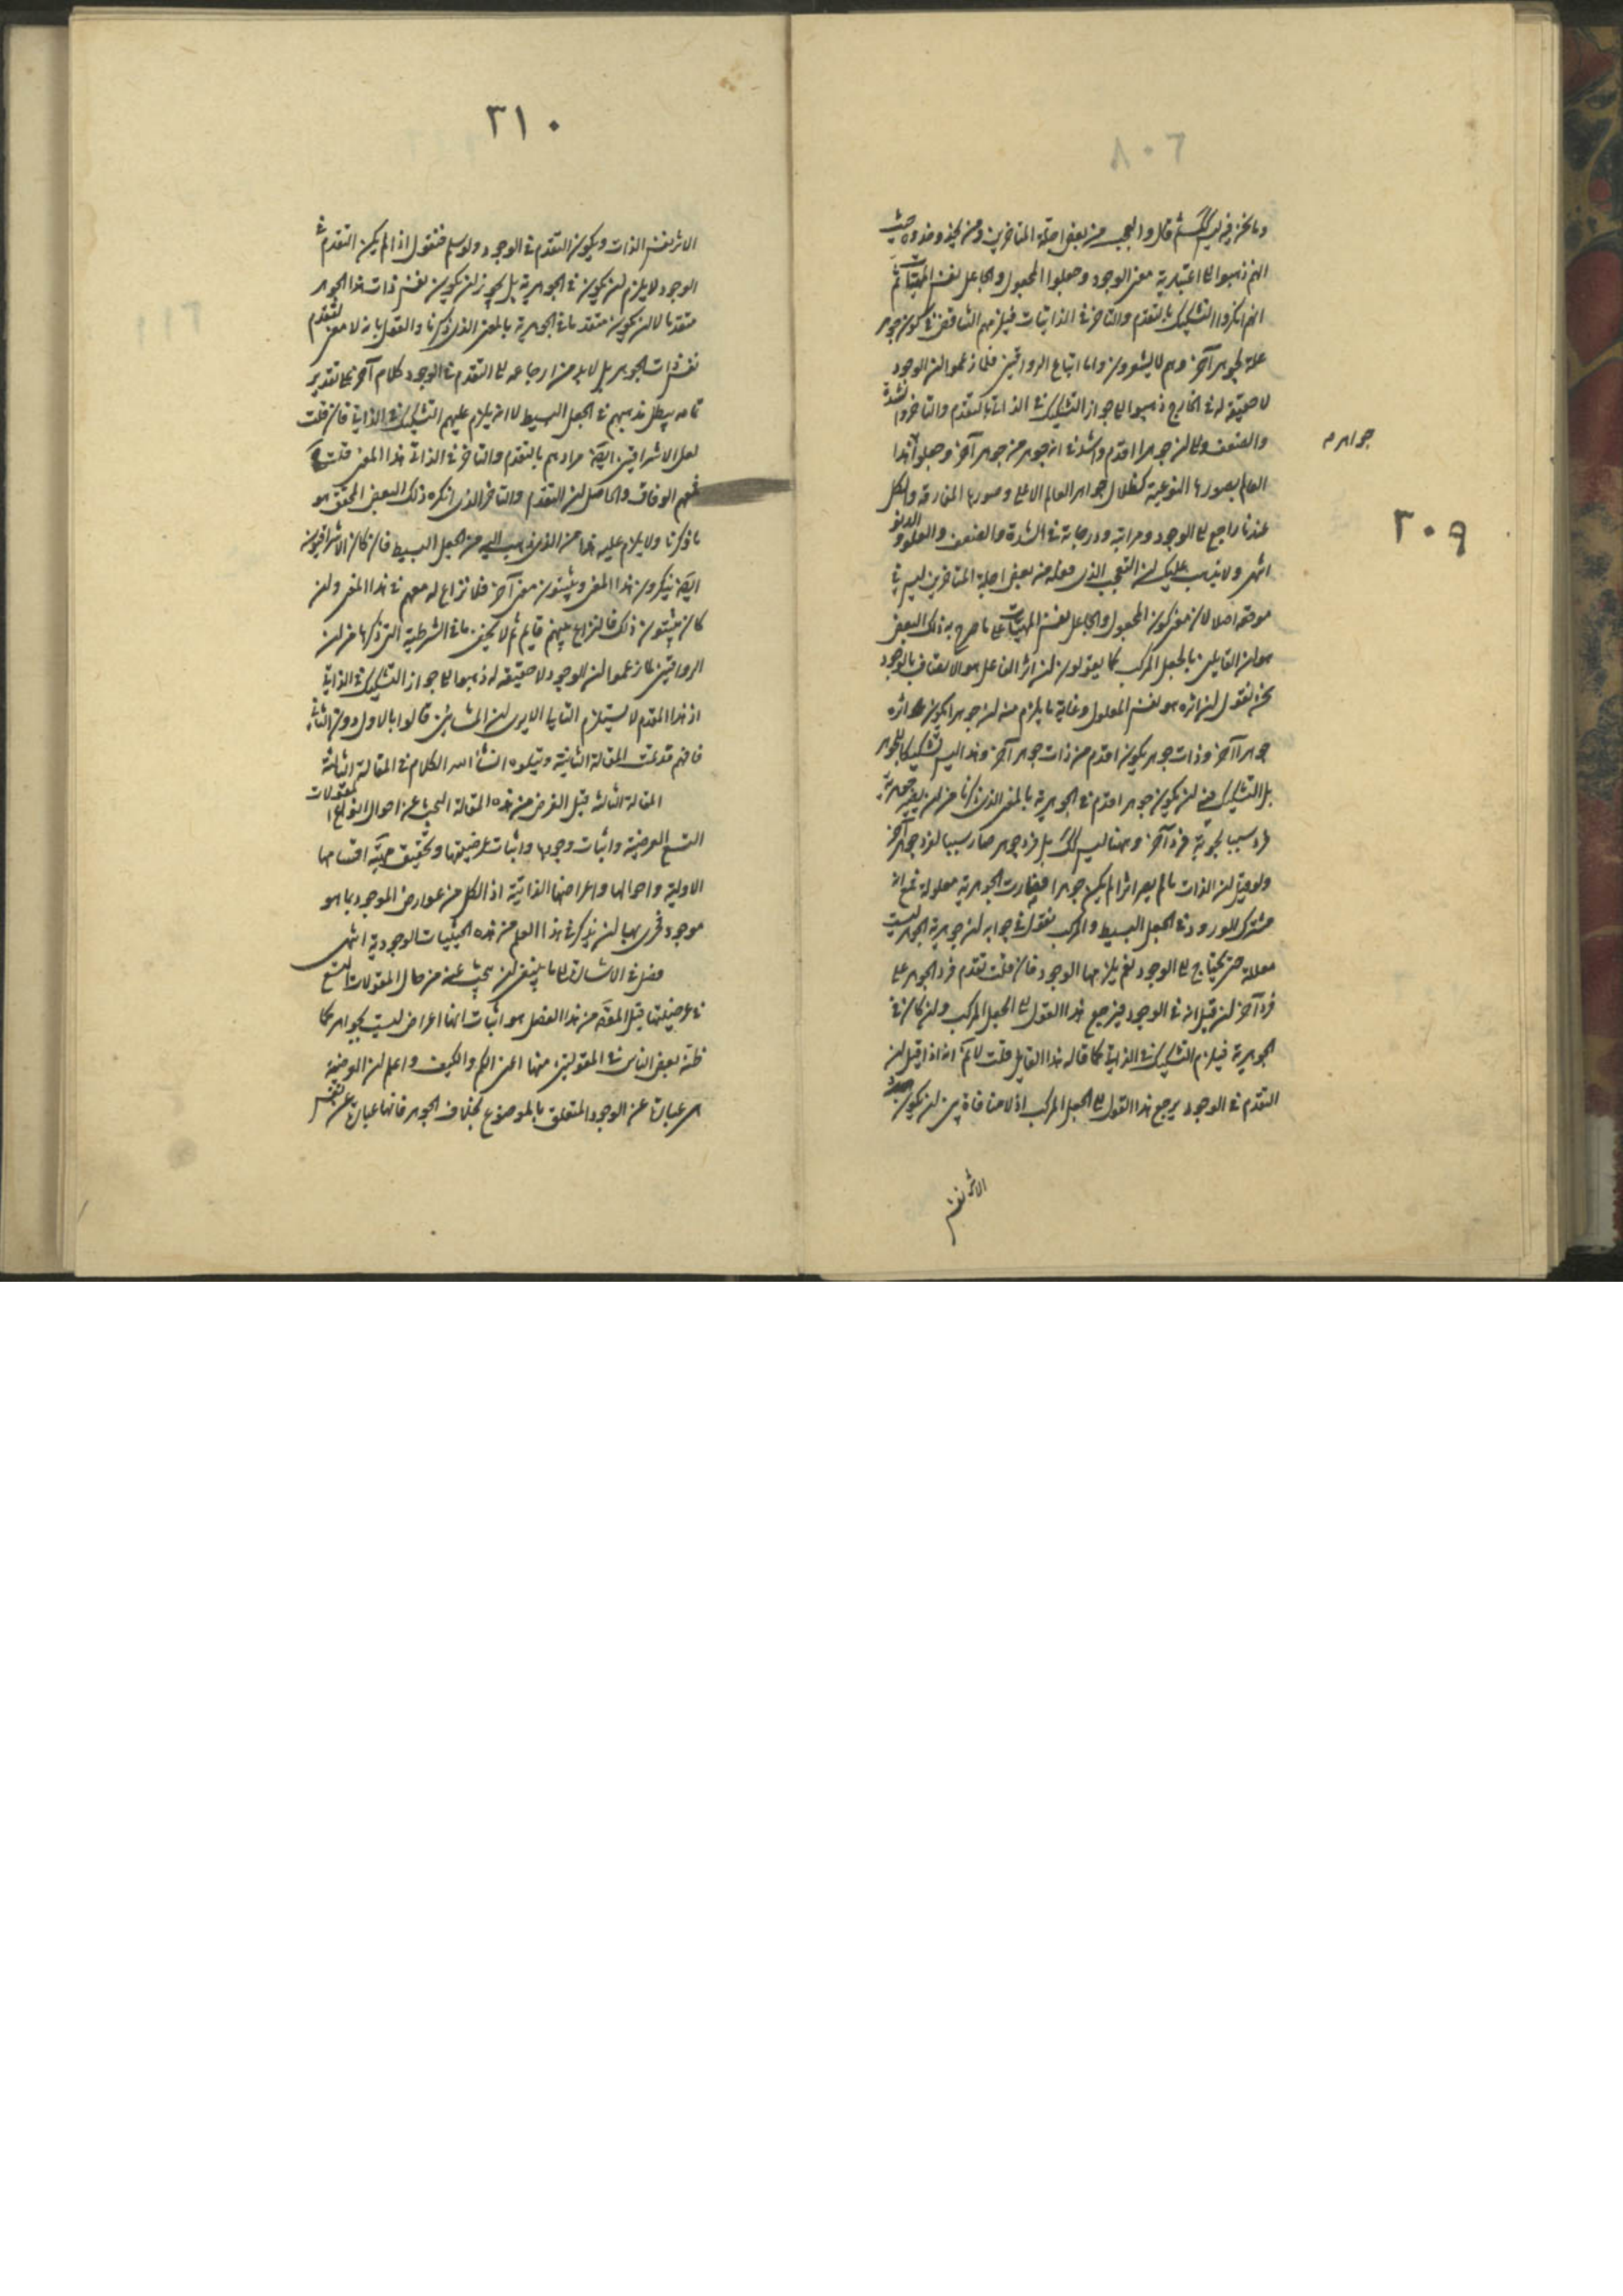 وما نحن فيه ليس كك ثم قال والعجب من بعض اجلة المتاخرين ومن يحذو حذوه حيث
انهم ذهبوا الى اعتبارية معنى الوجود وجعلوا المجعول والجاعل نفس المهيات ثم
انهم انكروا التشكيك بالتقدم والتاخر في الذاتيات فيلزمهم التناقض في كون جوهر
علة لجوهر آخر وهم لا يشعرون واما اتباع الرواقيين فلما زعموا ان الوجود
لا حقيقة له في الخارج ذهبوا الى جواز التشكيك في الذاتي بالتقدم والتاخر والشدة
والضعف والى ان جوهرا اقدم واشد في انه جوهر من جوهر آخر وجعلوا هذا
جواهر م
العالم بصورها النوعية كظلال لجواهر العالم الاعلى وصورها المفارقة والكل
عندنا راجع الى الوجود ومراتبه ودرجاته في الشدة والضعف والعلو والدنو
٣٠٩
انتهى ولا يذهب عليك ان التعجب الذي نقله من بعض اجلة المتاخرين ليس في
موقعه اصلا لان معنى كون المجعول والجاعل نفس المهيات على ما صرح به ذلك البعض
هو ان القايلين بالجعل المركب كما يقولون ان اثر الفاعل هو الاتصاف بالوجود
نحن نقول ان اثره هو نفس المعلول وغاية ما يلزم منه ان جوهرا يكون اثره
جوهرا آخر وذات جوهر يكون اقدم من ذات جوهر آخر وهذا ليس تشكيكا للجوهر
بل التشكيك فيه ان يكون جوهر اقدم في الجوهرية بالمعنى الذي ذكرنا من ان يصير جوهرية
فرد سببا لجوهرية فرد آخر وههنا ليس كك بل فرد جوهر صار سببا لفرد جوهر آخر
ولو قيل ان الذات ما لم يصر اثرا لم يكن جوهرا فصارت الجوهرية معلولة فمع انه
مشترك الورود في الجعل البسيط والمركب نقول في جوابه ان جوهرية الجوهر ليست
معللة حتى يحتاج الى الوجود نعم يلزمها الوجود فان قلت تقدم فرد الجوهر على
فرد آخر ان قيل انه في الوجود فيرجع هذا القول الى الجعل المركب وان كان في
الجوهرية فيلزم التشكيك في الذاتي كما قاله هذا القايل قلت لا نم انه اذا قيل ان
التقدم في الوجود يرجع هذا القول الى الجعل المركب اذ لا منافاة بين ان يكون
الاثر نفس
٣١٠
الاثر نفس الذات ويكون التقدم في الوجود ولو سلم فنقول اذا لم يكن التقدم في
الوجود لا يلزم ان يكون في الجوهرية بل يجوز ان يكون نفس ذات هذا الجوهر
متقدما لا ان يكون متقدما في الجوهرية بالمعنى الذي ذكرنا والقول بانه لا معنى لتقدم
نفس ذات الجوهر بل لا بد من ارجاعه الى التقدم في الوجود كلام آخر على تقدير
تمامه يبطل مذهبهم في الجعل البسيط لا انه يلزم عليهم التشكيك في الذاتي فان قلت
لعل الاشراقيين ايضا مرادهم بالتقدم والتاخر في الذاتي هذا المعنى قلت
فنعم الوفاق والحاصل ان التقدم والتاخر الذي انكره ذلك البعض المحقق هو
ما ذكرنا ولا يلزم عليه هذا من الذي ذهب اليه من الجعل البسيط فان كان الاشراقيون
ايضا ينكرون هذا المعنى ويثبتون معنى آخر فلا نزاع له معهم في هذا المعنى وان
كان يثبتون ذلك فالنزاع بينهم قايم ثم لا يخفى ما في الشرطية التي ذكرها من ان
الرواقيين لما زعموا ان الوجود لا حقيقة له ذهبوا الى جواز التشكيك في الذاتي
اذ هذا المقدم لا يستلزم التالي الا يرى ان المشائين قالوا بالاول دون الثاني
فافهم قد تمت المقالة الثانية ويتلوه انشاء الله الكلام في المقالة الثالثة
المقالة الثالثة قيل الغرض من هذه المقالة البحث عن احوال انواع المقولات
التسع العرضية واثبات وجودها واثبات عرضيتها وتحقيق مهية اقسامها
الاولية واحوالها واعراضها الذاتية اذ الكل من عوارض الموجود بما هو
موجود فحري بها ان يذكر في هذا العلم من هذه الحيثيات الوجودية انتهى
فصل في الاشارة الى ما ينبغي ان يبحث عنه من حال المقولات التسع
في عرضيتها قيل المقصد من هذا الفصل هو اثبات انها اعراض ليست بجواهر كما
ظنه بعض الناس في المقولتين منها اعني الكم والكيف واعلم ان العرضية
هي عبارة عن الوجود المتعلق بالموضوع بخلاف الجوهر فانها عبارة عن نفس